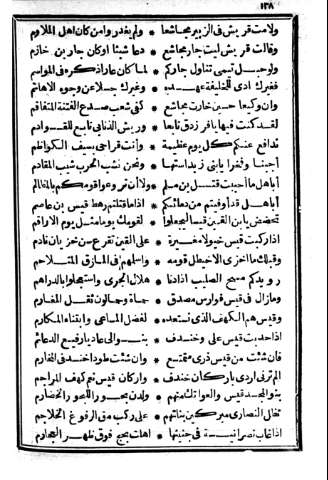 ١٣٨
ولامت قريش فى الزبير مجاشعا * ولم يعذروا من كان اهل الملاوم
وقالت قريش ليت جار مجاشع * دعا شبثا او كان جار بن خازم
ولو حبل تيمى تناول جاركم * لما كان عارا ذكره فى المواسم
فغيرك ادى للخليفة عهده * وغيرك جلا عن وجوه الاهاتم
وان وكيعا حين خارت مجاشع * كفى شعب صدع الفتنة المتفاقم
لقد كنت فيها يا فرزدق تابعا * وريش الذنابى تابع للقوادم
ندافع عنكم كل يوم عظيمة * وانت قراحى بسيف الكواظم
أجبنا وفخرا يا بنى زبد استها * ونحن نشب الحرب شيب المقادم
أباهل ما أحببت قتل بن مسلم * ولا أن تروعوا قومكم بالمظالم
أباهل قد أوفيتم من دمائكم * اذا ما قتلتم رهط قيس بن عاصم
تحضض يا ابن القين قيسا ليجعلوا * لقومك يوما مثل يوم الاراقم
اذا ركبت قيس خيولا مغيرة * على القين تقرع سن خزيان نادم
وقبلك ما اخزى الاخيطل قومه * واسلمهم فى المازق المتلاحم
رويدكم مسح الصليب اذا دنا * هلال الجزى واستعجلوا بالدراهم
وما زال فى قيس فوارس مصدق * حماة وحمالون ثقل المغارم
وقيس هم الكهف الذى نستعده * لفضل المساعى وابتناء المكارم
اذا حدبت قيس على وخندف * بنو العاديا رفيع الدعائم
فان شئت من قيس ذرى متمنع * وان شئت طودا خندفى المخارم
الم ترنى اردى باركان خندف * واركان قيس نعم كهف المراجم
بنو المجد قيس والعواتك منهم * ولدن بحورا للبحور الخضارم
تغال النصارى مبركين بناتهم * على ركب من الرفوغ الخلاجم
اذا غاب نصرانية فى جنينها * اهلت بحج فوق ظهر العجارم